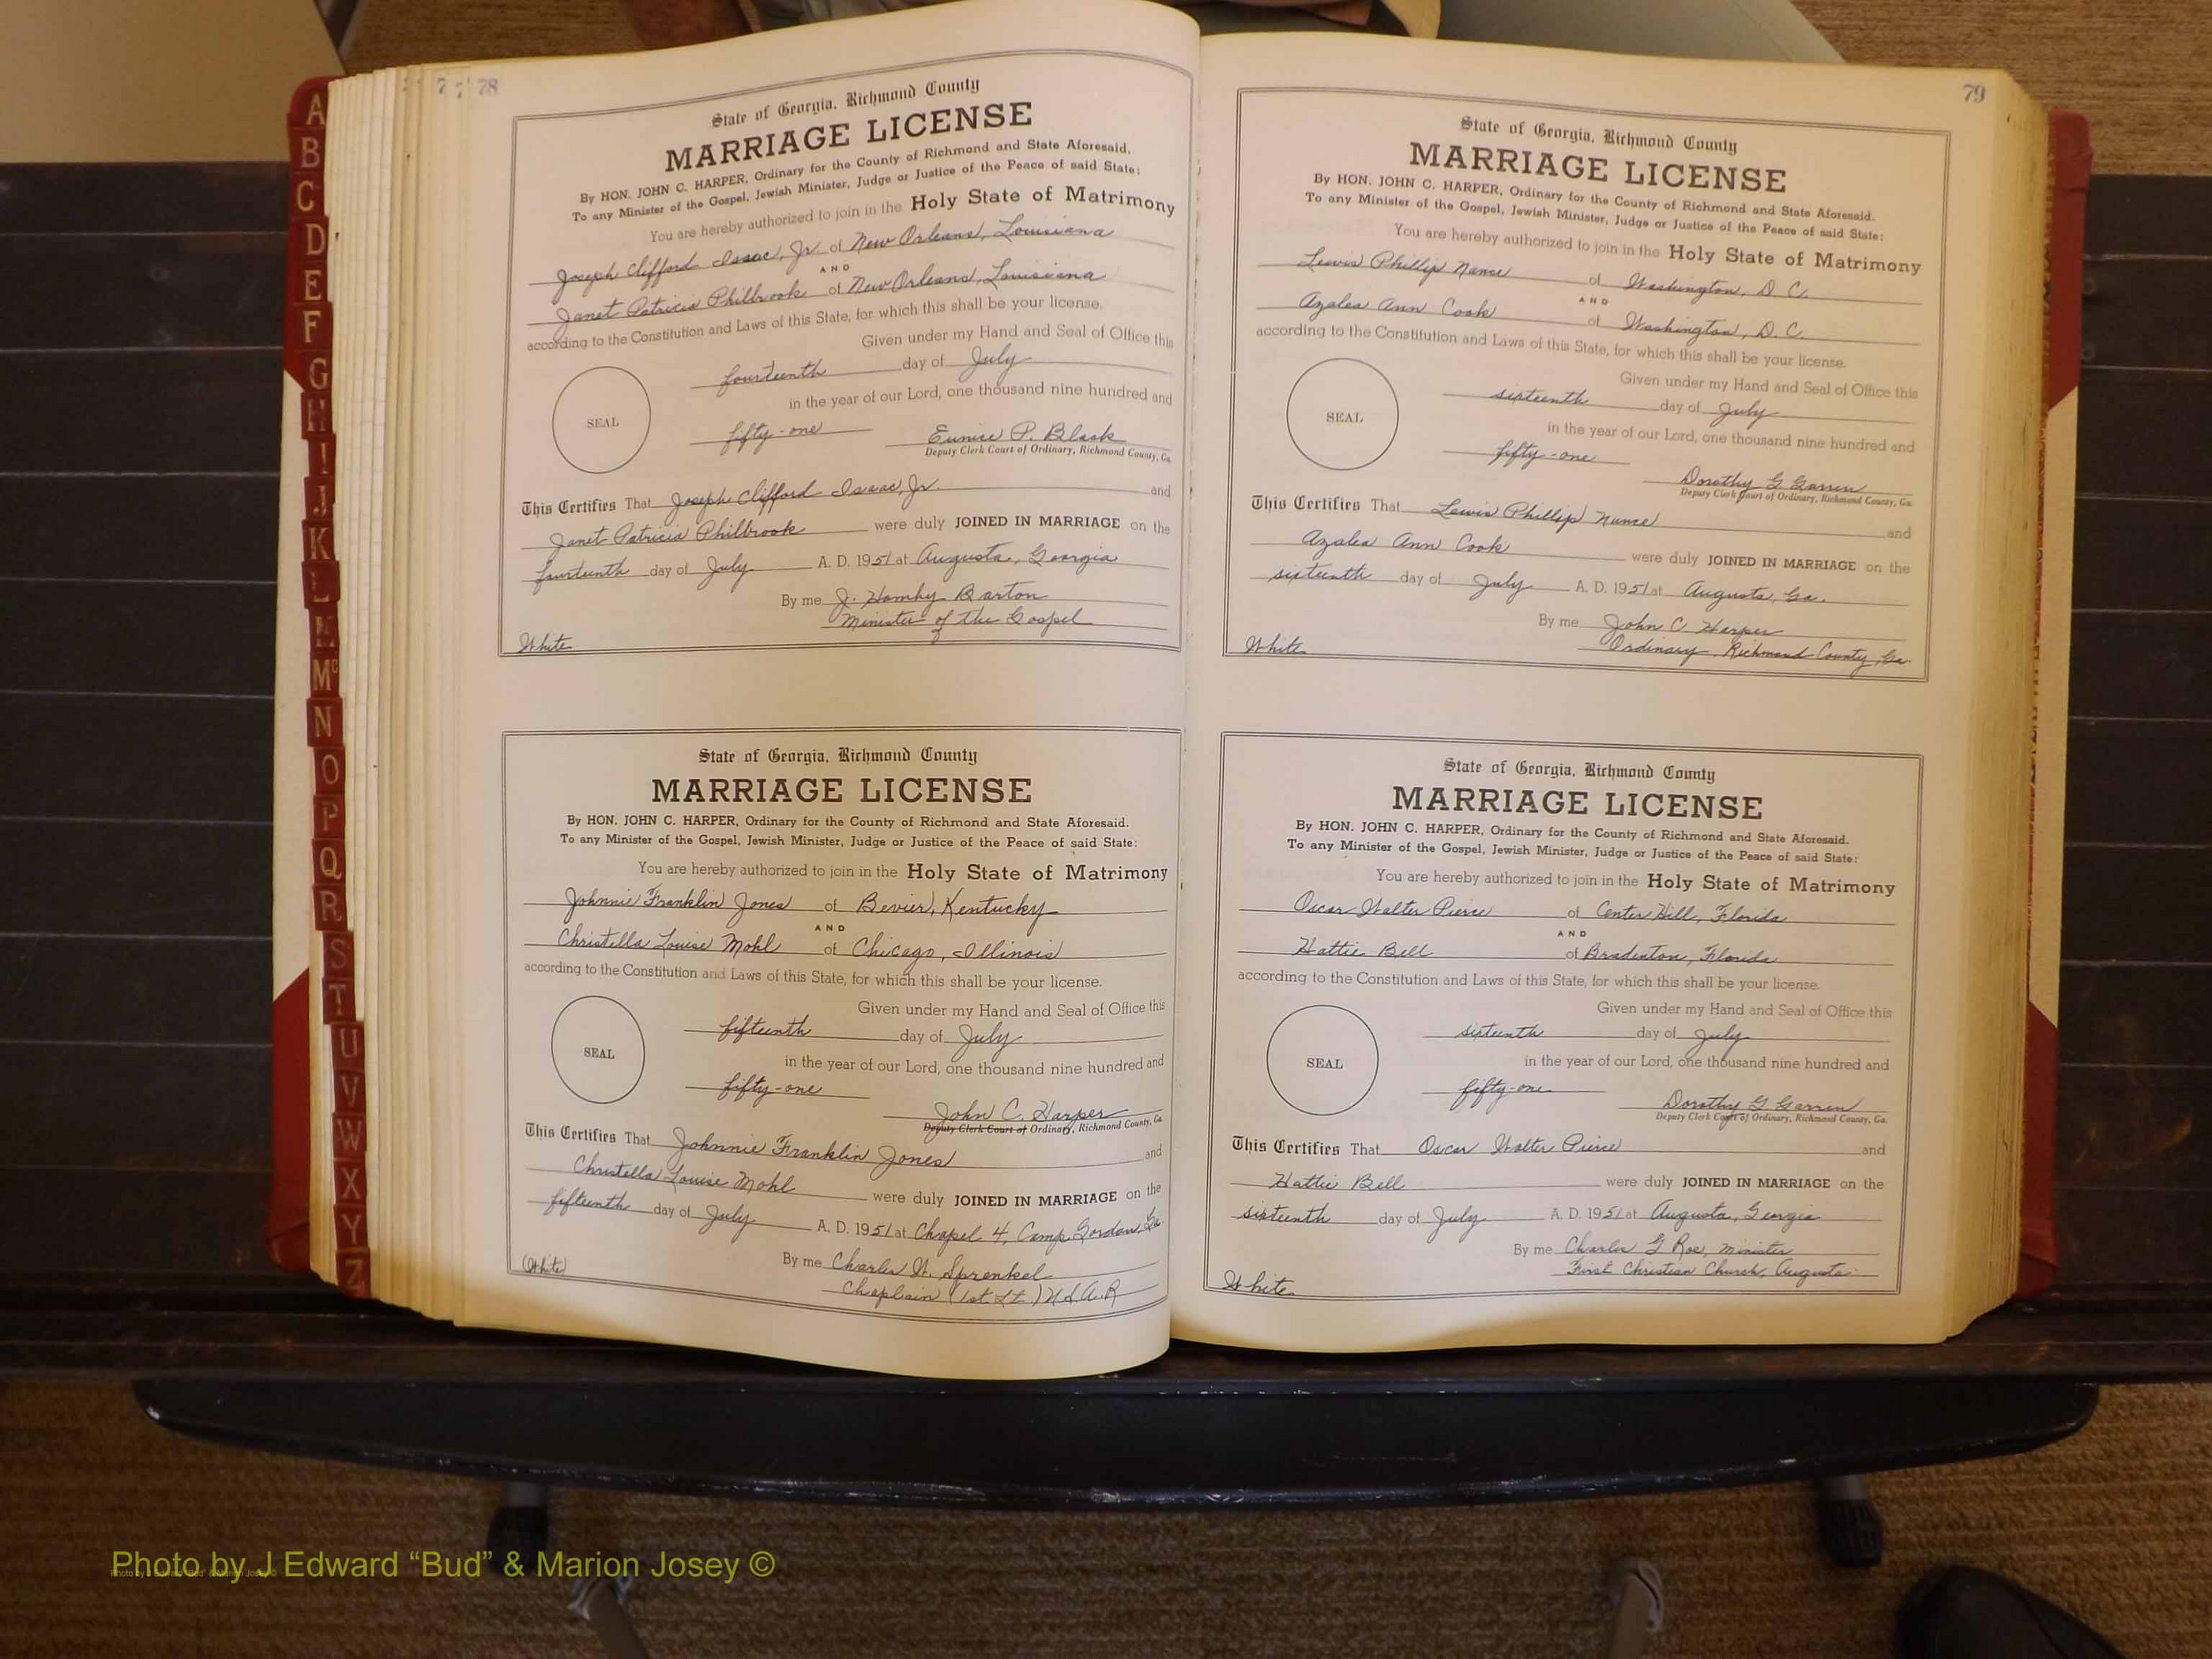 78
State of Georgia, Richmond County
MARRIAGE LICENSE
By HON. JOHN C. HARPER, Ordinary for the County of Richmond and State Aforesaid.
To any Minister of the Gospel, Jewish Minister, Judge or Justice of the Peace of said State:
You are hereby authorized to join in the Holy State of Matrimony
Joseph Clifford Isaac, Jr of New Orleans, Louisiana
AND
Janet Patricia Philbrook of New Orleans, Louisiana
according to the Constitution and Laws of this State, for which this shall be your license.
Given under my Hand and Seal of Office this
fourteenth day of July
in the year of our Lord, one thousand nine hundred and
SEAL
fifty-one Eunice P. Black
Deputy Clerk Court of Ordinary, Richmond County, Ga.
This Certifies That Joseph Clifford Isaac, Jr. and
Janet Patricia Philbrook were duly JOINED IN MARRIAGE on the
fourteenth day of July A. D. 1951 at Augusta, Georgia
By me J. Hamby Barton
Minister of the Gospel
White
State of Georgia, Richmond County
MARRIAGE LICENSE
By HON. JOHN C. HARPER, Ordinary for the County of Richmond and State Aforesaid.
To any Minister of the Gospel, Jewish Minister, Judge or Justice of the Peace of said State:
You are hereby authorized to join in the Holy State of Matrimony
Johnnie Franklin Jones of Bevier, Kentucky
AND
Christella Louise Mohl of Chicago, Illinois
according to the Constitution and Laws of this State, for which this shall be your license.
Given under my Hand and Seal of Office this
fifteenth day of July
SEAL
in the year of our Lord, one thousand nine hundred and
fifty-one
John C. Harper
Deputy Clerk Court of Ordinary, Richmond County, Ga
This Certifies That Johnnie Franklin Jones and
Christella Louise Mohl were duly JOINED IN MARRIAGE on the
fifteenth day of July A. D. 1951 at Chapel 4, Camp Gordon, Ga.
By me Charles W. Sprenkel
Chaplain (1st Lt.) U.S.A.R
(White)
79
State of Georgia, Richmond County
MARRIAGE LICENSE
By HON. JOHN C. HARPER, Ordinary for the County of Richmond and State Aforesaid.
To any Minister of the Gospel, Jewish Minister, Judge or Justice of the Peace of said State:
You are hereby authorized to join in the Holy State of Matrimony
Lewis Phillip Nance of Washington, D. C.
AND
Azalea Ann Cook of Washington, D. C.
according to the Constitution and Laws of this State, for which this shall be your license.
Given under my Hand and Seal of Office this
sixteenth day of July
SEAL
in the year of our Lord, one thousand nine hundred and
fifty-one
Dorothy G Garren
Deputy Clerk Court of Ordinary, Richmond County, Ga.
This Certifies That Lewis Phillip Nance and
Azalea Ann Cook were duly JOINED IN MARRIAGE on the
sixteenth day of July A. D. 1951 at Augusta, Ga.
By me John C. Harper
Ordinary, Richmond County, Ga.
White
State of Georgia, Richmond County
MARRIAGE LICENSE
By HON. JOHN C. HARPER, Ordinary for the County of Richmond and State Aforesaid.
To any Minister of the Gospel, Jewish Minister, Judge or Justice of the Peace of said State:
You are hereby authorized to join in the Holy State of Matrimony
Oscar Walter Pierce of Center Hill, Florida
AND
Hattie Bell of Bradenton, Florida
according to the Constitution and Laws of this State, for which this shall be your license.
Given under my Hand and Seal of Office this
sixteenth day of July
SEAL
in the year of our Lord, one thousand nine hundred and
fifty-one
Dorothy G Garren
Deputy Clerk Court of Ordinary, Richmond County, Ga.
This Certifies That Oscar Walter Pierce and
Hattie Bell were duly JOINED IN MARRIAGE on the
sixteenth day of July A. D. 1951 at Augusta, Georgia
By me Charles G Roe, Minister
First Christian Church, Augusta
White
A
B
C
D
E
F
G
H
I
J
K
L
M
Mc
N
O
P
Q
R
S
T
U
V
W
X
Y
Z
Photo by J Edward “Bud” & Marion Josey ©
Photo by J Edward “Bud” & Marion Josey ©